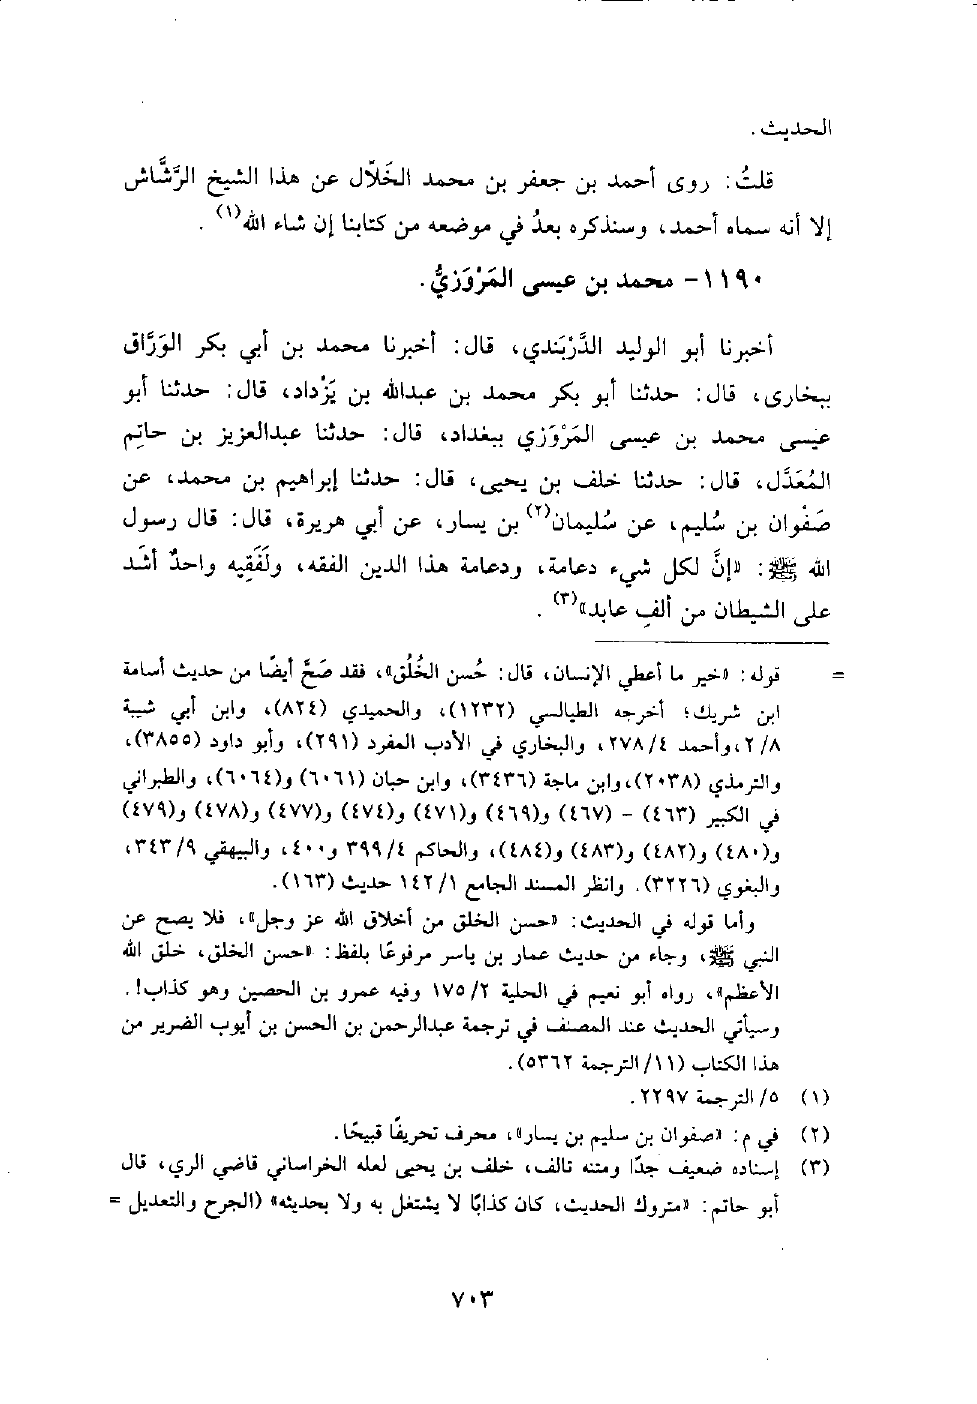 الحديث .
قلتُ: روى أحمد بن جعفر بن محمد الخَلّال عن هذا الشيخ الرَّشَّاش
إلا أنه سماه أحمد، وسنذكره بعدُ في موضعه من كتابنا إن شاء الله(١) .
١١٩٠- محمد بن عيسى المَرْوَزيُّ.
أخبرنا أبو الوليد الدَّرْبَندي، قال: أخبرنا محمد بن أبي بكر الورَّاق
ببخارى، قال: حدثنا أبو بكر محمد بن عبدالله بن يَزْداد، قال: حدثنا أبو
عيسى محمد بن عيسى المَرْوَزي ببغداد، قال: حدثنا عبدالعزيز بن حاتم
المُعَدَّل، قال: حدثنا خلف بن يحيى، قال: حدثنا إبراهيم بن محمد، عن
صَفْوان بن سُليم، عن سُليمان(٢) بن يسار، عن أبي هريرة، قال: قال رسول
الله ﷺ: «إنَّ لكل شيء دعامة، ودعامة هذا الدين الفقه، ولَفَقِيه واحدٌ أشَد
على الشيطان من ألفِ عابد»(٣) .
= قوله: «خير ما أعطي الإنسان، قال: حُسن الخُلُق»، فقد صَحَّ أيضًا من حديث أسامة
ابن شريك؛ أخرجه الطيالسي (١٢٣٢)، والحميدي (٨٢٤)، وابن أبي شيبة
٢/٨، وأحمد ٢٧٨/٤، والبخاري في الأدب المفرد (٢٩١)، وأبو داود (٣٨٥٥)،
والترمذي (٢٠٣٨)، وابن ماجة (٣٤٣٦)، وابن حبان (٦٠٦١) و(٦٠٦٤)، والطبراني
في الكبير (٤٦٣) - (٤٦٧) و(٤٦٩) و(٤٧١) و(٤٧٤) و(٤٧٧) و(٤٧٨) و(٤٧٩)
و(٤٨٠) و(٤٨٢) و(٤٨٣) و(٤٨٤)، والحاكم ٣٩٩/٤ و٤٠٠، والبيهقي ٣٤٣/٩،
والبغوي (٣٢٢٦). وانظر المسند الجامع ١٤٢/١ حديث (١٦٣).
وأما قوله في الحديث: «حسن الخلق من أخلاق الله عز وجل»، فلا يصح عن
النبي ﷺ، وجاء من حديث عمار بن ياسر مرفوعًا بلفظ: «حسن الخلق، خلق الله
الأعظم»، رواه أبو نعيم في الحلية ١٧٥/٢ وفيه عمرو بن الحصين وهو كذاب!.
وسيأتي الحديث عند المصنف في ترجمة عبدالرحمن بن الحسن بن أيوب الضرير من
هذا الكتاب (١١/ الترجمة ٥٣٦٢).
(١) ٥/ الترجمة ٢٢٩٧.
(٢) في م: «صفوان بن سليم بن يسار»، محرف تحريفًا قبيحًا.
(٣) إسناده ضعيف جدًا ومتنه تالف، خلف بن يحيى لعله الخراساني قاضي الري، قال
أبو حاتم: «متروك الحديث، كان كذابًا لا يشتغل به ولا بحديثه» (الجرح والتعديل =
٧٠٣